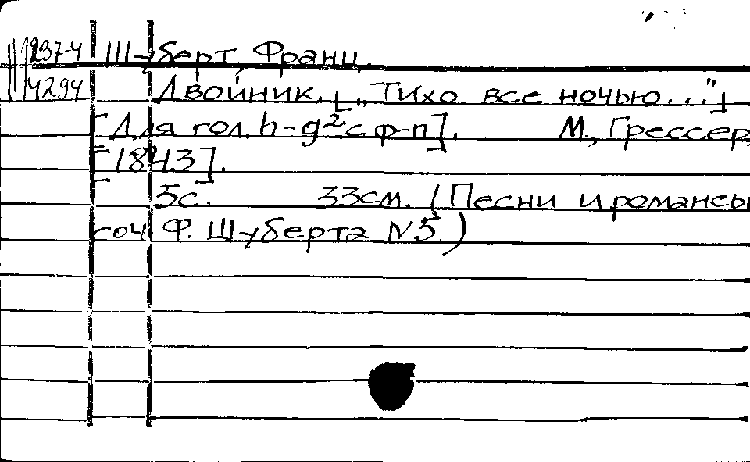 237-4 Шуберт, Франц.
4294 Двойник. [„Тихо все ночью..."]
[Для гол. h-g² с ф-п]. М., Грессер,
[1843].
5с. 33см. (Песни и романсы
соч. Ф. Шуберта №5)